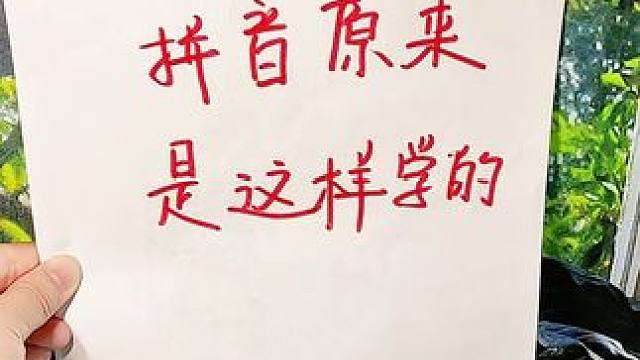 拼音原来
是这样学的